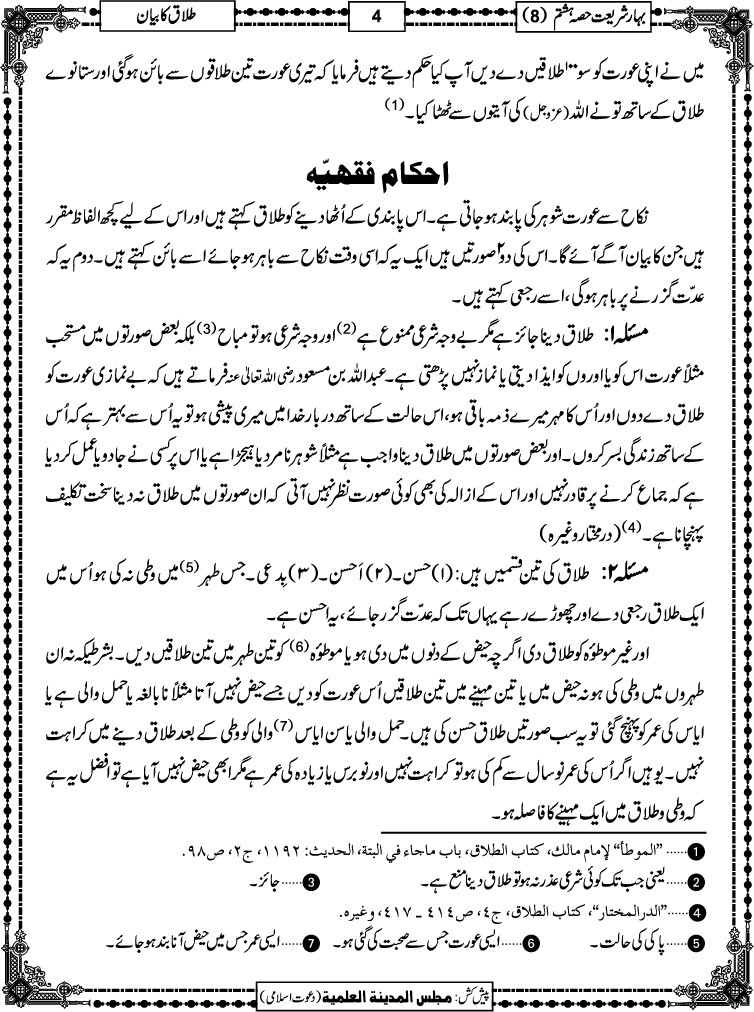 بہارِ شریعت حصہ ہشتم (8)
4
طلاق کا بیان
میں نے اپنی عورت کو سو۱۰۰ طلاقیں دے دیں آپ کیا حکم دیتے ہیں فرمایا کہ تیری عورت تین طلاقوں سے بائن ہوگئی اور ستانوے
طلاق کے ساتھ تو نے اللہ (عزوجل) کی آیتوں سے ٹھٹا کیا۔ (1)
احکام فقھیّہ
نکاح سے عورت شوہر کی پابند ہو جاتی ہے۔ اس پابندی کے اُٹھا دینے کو طلاق کہتے ہیں اور اس کے لیے کچھ الفاظ مقرر
ہیں جن کا بیان آگے آئے گا۔ اس کی دو۲ صورتیں ہیں ایک یہ کہ اسی وقت نکاح سے باہر ہو جائے اسے بائن کہتے ہیں۔ دوم یہ کہ
عدّت گزرنے پر باہر ہوگی، اسے رجعی کہتے ہیں۔
مسئلہ ۱: طلاق دینا جائز ہے مگر بے وجہ شرعی ممنوع ہے (2) اور وجہ شرعی ہو تو مباح (3) بلکہ بعض صورتوں میں مستحب
مثلاً عورت اس کو یا اوروں کو ایذا دیتی یا نماز نہیں پڑھتی ہے۔ عبداللہ بن مسعود رضی اللہ تعالیٰ عنہ فرماتے ہیں کہ بے نمازی عورت کو
طلاق دے دوں اور اُس کا مہر میرے ذمہ باقی ہو، اس حالت کے ساتھ دربار خدا میں میری پیشی ہو تو یہ اُس سے بہتر ہے کہ اُس
کے ساتھ زندگی بسر کروں۔ اور بعض صورتوں میں طلاق دینا واجب ہے مثلاً شوہر نامرد یا ہیجڑا ہے یا اس پر کسی نے جادو یا عمل کردیا
ہے کہ جماع کرنے پر قادر نہیں اور اس کے ازالہ کی بھی کوئی صورت نظر نہیں آتی کہ ان صورتوں میں طلاق نہ دینا سخت تکلیف
پہنچانا ہے۔ (4) (درمختار وغیرہ)
مسئلہ ۲: طلاق کی تین قسمیں ہیں: (۱) حسن۔ (۲) اَحسن۔ (۳) بِدعی۔ جس طہر (5) میں وطی نہ کی ہو اُس میں
ایک طلاق رجعی دے اور چھوڑے رہے یہاں تک کہ عدّت گزر جائے، یہ احسن ہے۔
اور غیر موطؤہ کو طلاق دی اگرچہ حیض کے دنوں میں دی ہو یا موطؤہ (6) کو تین طہر میں تین طلاقیں دیں۔ بشرطیکہ نہ ان
طہروں میں وطی کی ہو نہ حیض میں یا تین مہینے میں تین طلاقیں اُس عورت کو دیں جسے حیض نہیں آتا مثلاً نابالغہ یا حمل والی ہے یا
ایاس کی عمر کو پہنچ گئی تو یہ سب صورتیں طلاق حسن کی ہیں۔ حمل والی یا سن ایاس (7) والی کو وطی کے بعد طلاق دینے میں کراہت
نہیں۔ یوہیں اگر اُس کی عمر نو سال سے کم کی ہو تو کراہت نہیں اور نو برس یا زیادہ کی عمر ہے مگر ابھی حیض نہیں آیا ہے تو افضل یہ ہے
کہ وطی و طلاق میں ایک مہینے کا فاصلہ ہو۔
1 ...... "الموطأ" لإمام مالك، كتاب الطلاق، باب ماجاء في البتة، الحديث: ١١٩٢، ج٢، ص٩٨.
2 ...... یعنی جب تک کوئی شرعی عذر نہ ہو تو طلاق دینا منع ہے۔ 3 ...... جائز۔
4 ...... "الدرالمختار"، كتاب الطلاق، ج٤، ص٤١٤ ـ ٤١٧، وغيره.
5 ...... پاکی کی حالت۔ 6 ...... ایسی عورت جس سے صحبت کی گئی ہو۔ 7 ...... ایسی عمر جس میں حیض آنا بند ہو جائے۔
پیش کش: مجلس المدينة العلمية (دعوت اسلامی)